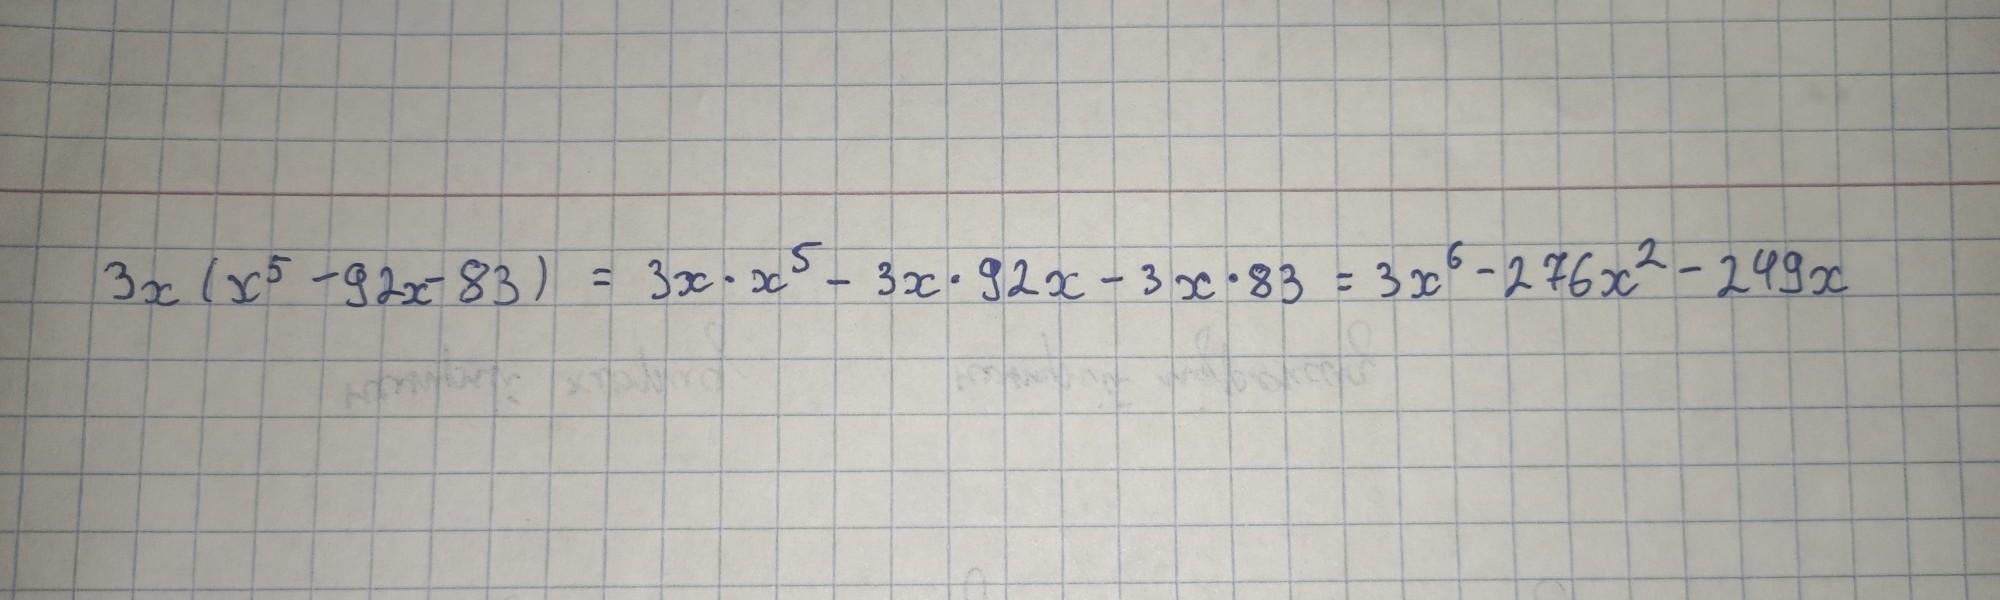 3x (x⁵ - 92x - 83) = 3x · x⁵ - 3x · 92x - 3x · 83 = 3x⁶ - 276x² - 249x